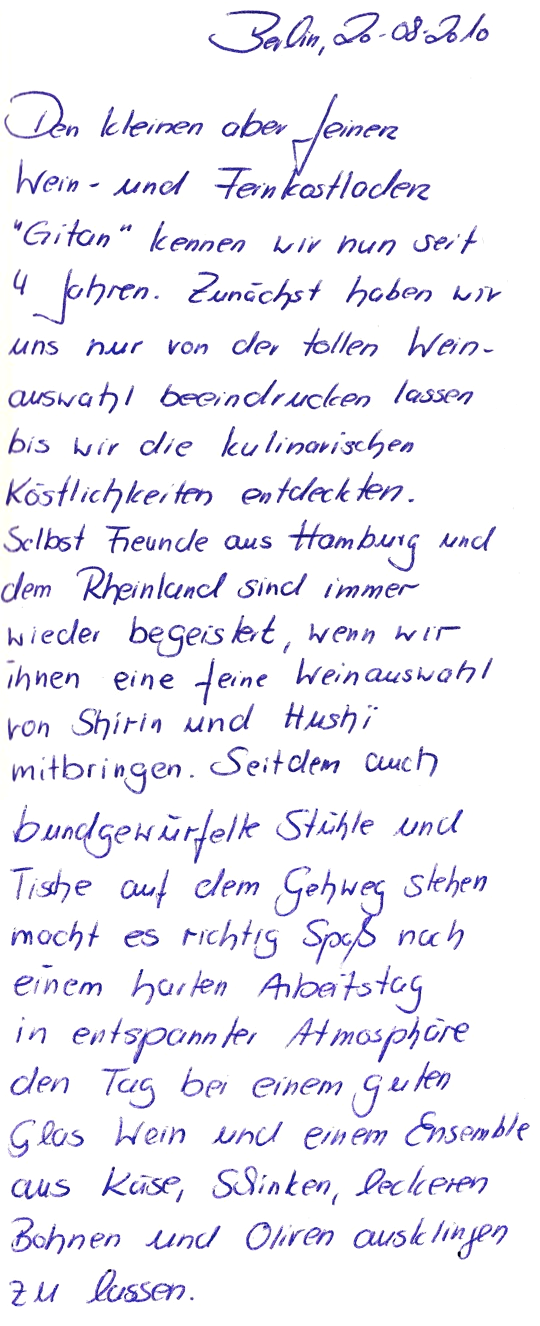 Berlin, 20-08-2010
Den kleinen aber feinen
Wein- und Feinkostladen
"Gitan" kennen wir nun seit
4 Jahren. Zunächst haben wir
uns nur von der tollen Wein-
auswahl beeindrucken lassen
bis wir die kulinarischen
Köstlichkeiten entdeckten.
Selbst Freunde aus Hamburg und
dem Rheinland sind immer
wieder begeistert, wenn wir
ihnen eine feine Weinauswahl
von Shirin und Hushi
mitbringen. Seitdem auch
bundgewürfelte Stühle und
Tische auf dem Gehweg stehen
macht es richtig Spaß nach
einem harten Arbeitstag
in entspannter Atmosphäre
den Tag bei einem guten
Glas Wein und einem Ensemble
aus Käse, Schinken, leckeren
Bohnen und Oliven ausklingen
zu lassen.